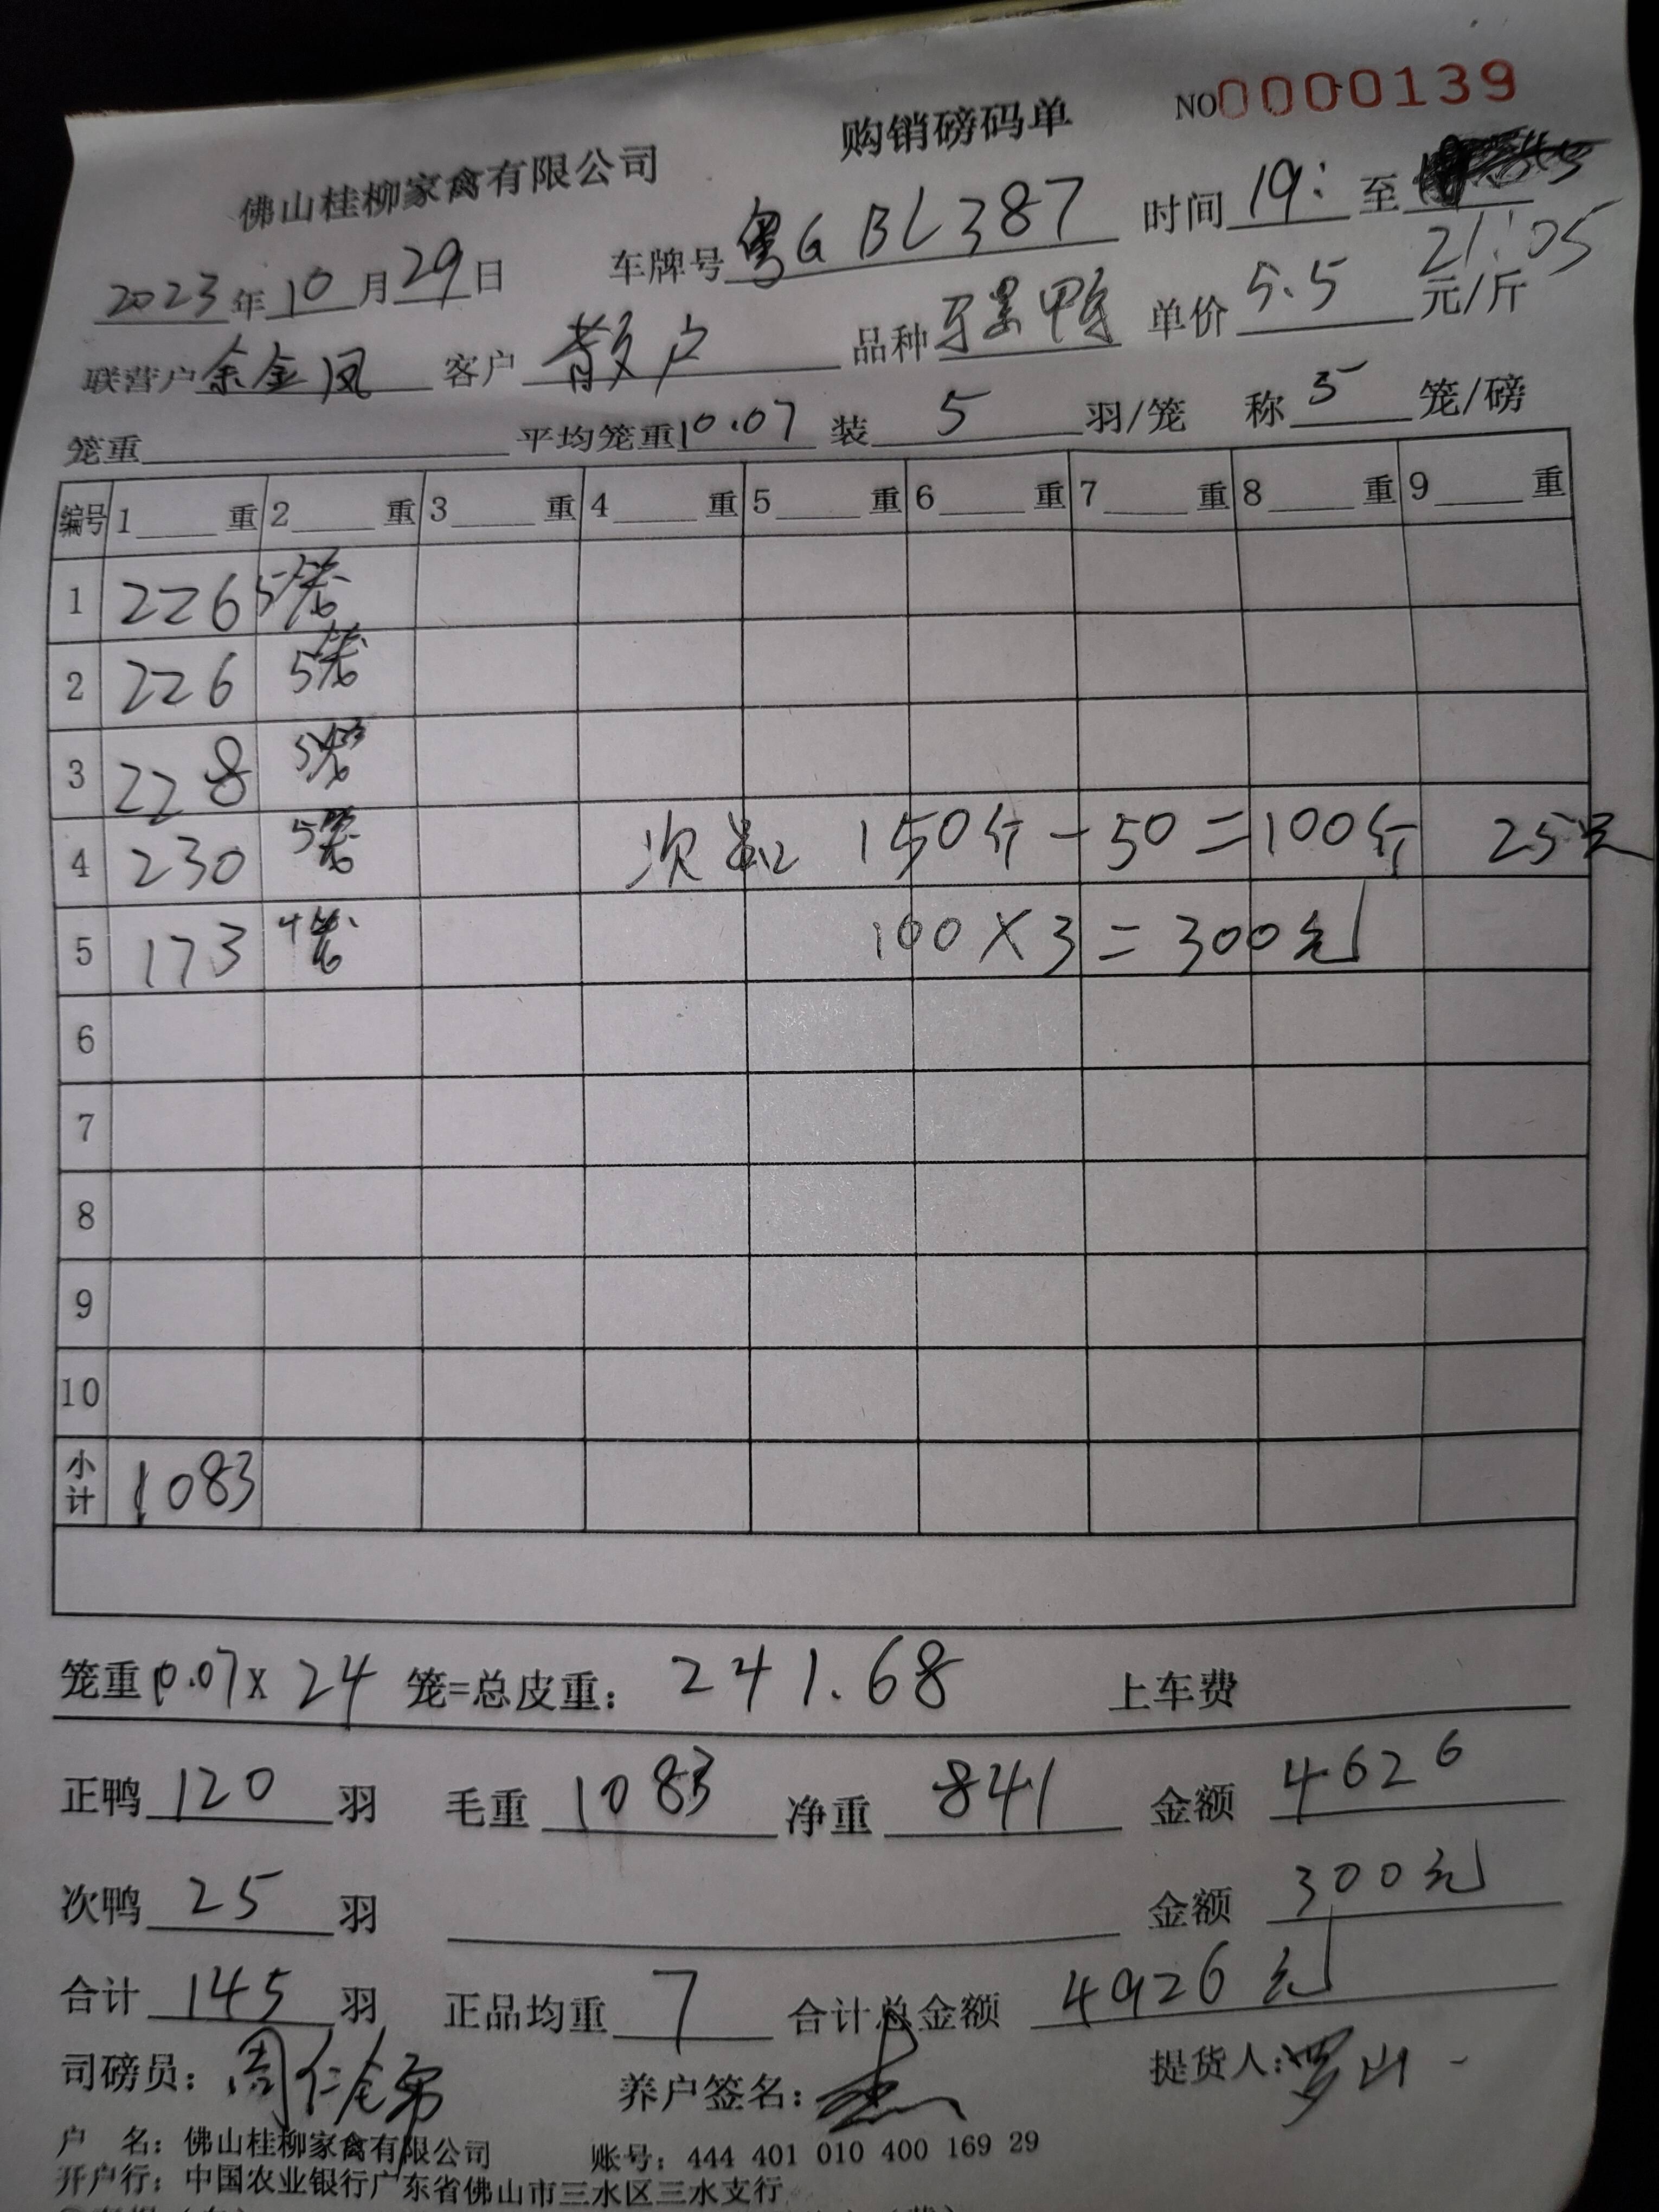 购销磅码单 NO0000139
佛山桂柳家禽有限公司
2023年10月29日 车牌号粤G BL387 时间19: 至 21:05
联营户余金凤 客户散户 品种 单价5.5元/斤
笼重 平均笼重10.07 装5羽/笼 称5笼/磅
编号 1 重 2 重 3 重 4 重 5 重 6 重 7 重 8 重 9 重
1 226 5笼
2 226 5笼
3 228 5笼
4 230 5笼 次品 150斤-50=100斤 25只
5 173 4笼 100×3=300元
6
7
8
9
10
小计 1083
笼重10.07x 24 笼=总皮重: 241.68 上车费
正鸭120羽 毛重1083 净重841 金额4626
次鸭25羽 金额300元
合计145羽 正品均重7 合计总金额4926元
司磅员: 养户签名: 提货人:罗山
户 名: 佛山桂柳家禽有限公司 账号: 444 401 010 400 169 29
开户行: 中国农业银行广东省佛山市三水区三水支行